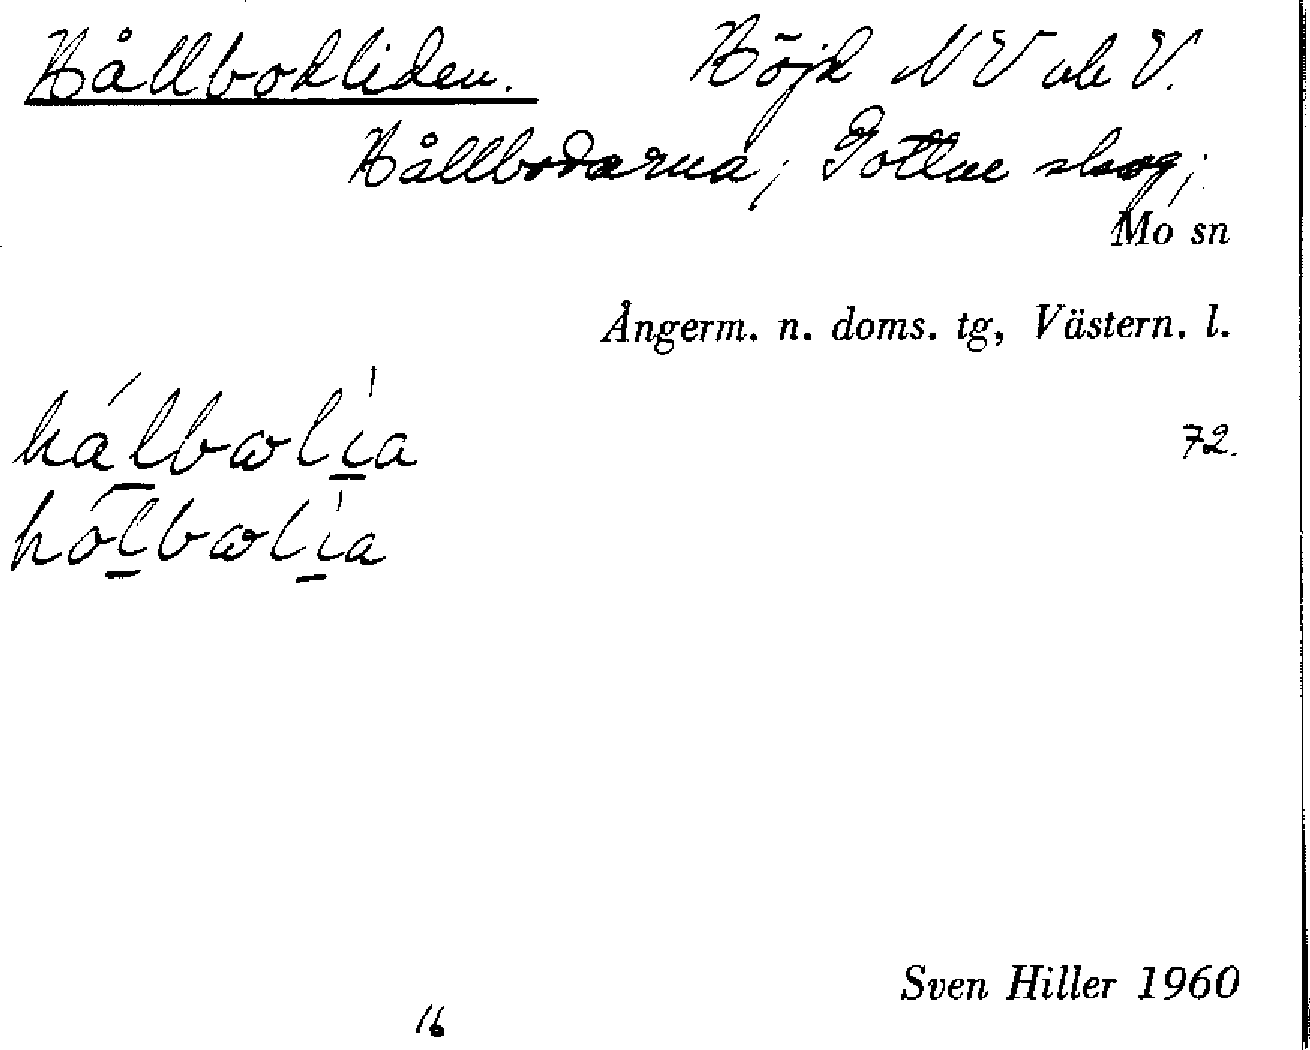 Hållbodliden. Höjd NV ok V.
Hållbodarna; Gottne skog;
Mo sn
Ångerm. n. doms. tg, Västern. l.
hálbωlía
72.
hólbωlía
Sven Hiller 1960
16